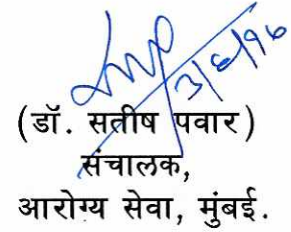 3/6/16
(डॉ. सतीष पवार)
संचालक,
आरोग्य सेवा, मुंबई.